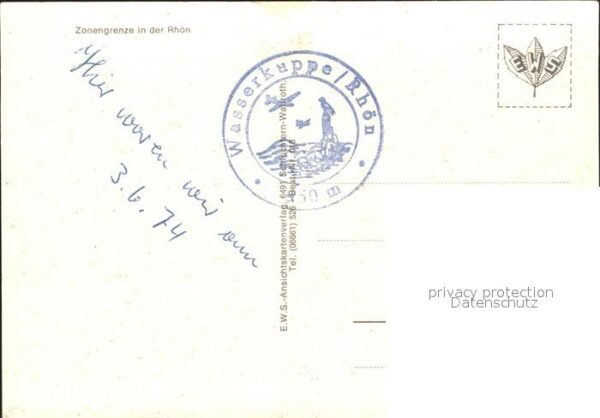 Zonengrenze in der Rhön
Hier waren wir am
3.6.74
Wasserkuppe/Rhön
50 m
E.W.S.-Ansichtskartenverlag, 6491 Schlüchtern-Wallroth
Tel. (06661) 526
EWS
privacy protection
Datenschutz